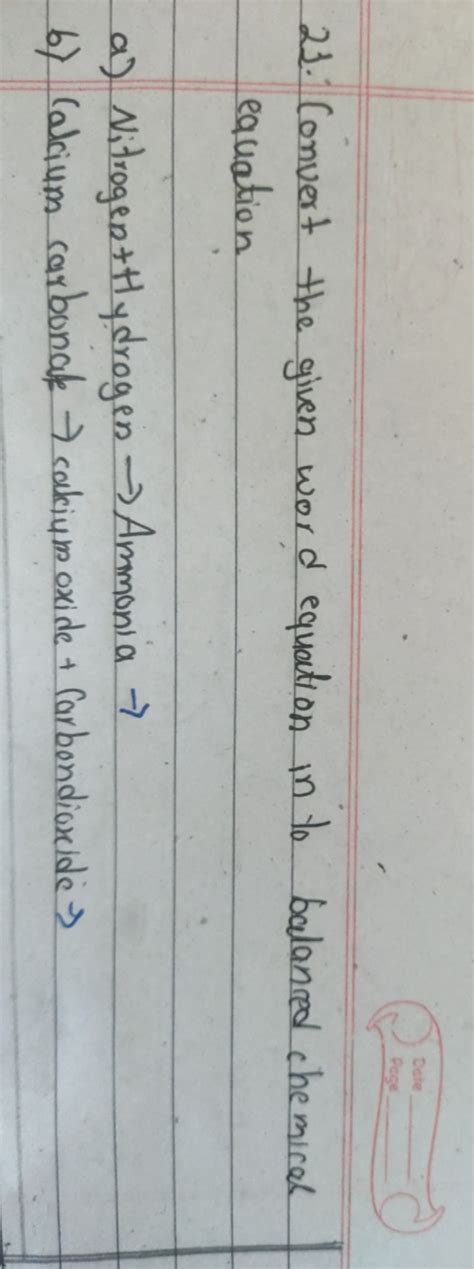 Date
Page
21. Convert the given word equation in to balanced chemical
equation
a) Nitrogen + Hydrogen → Ammonia →
b) Calcium carbonate → calcium oxide + Carbondioxide →